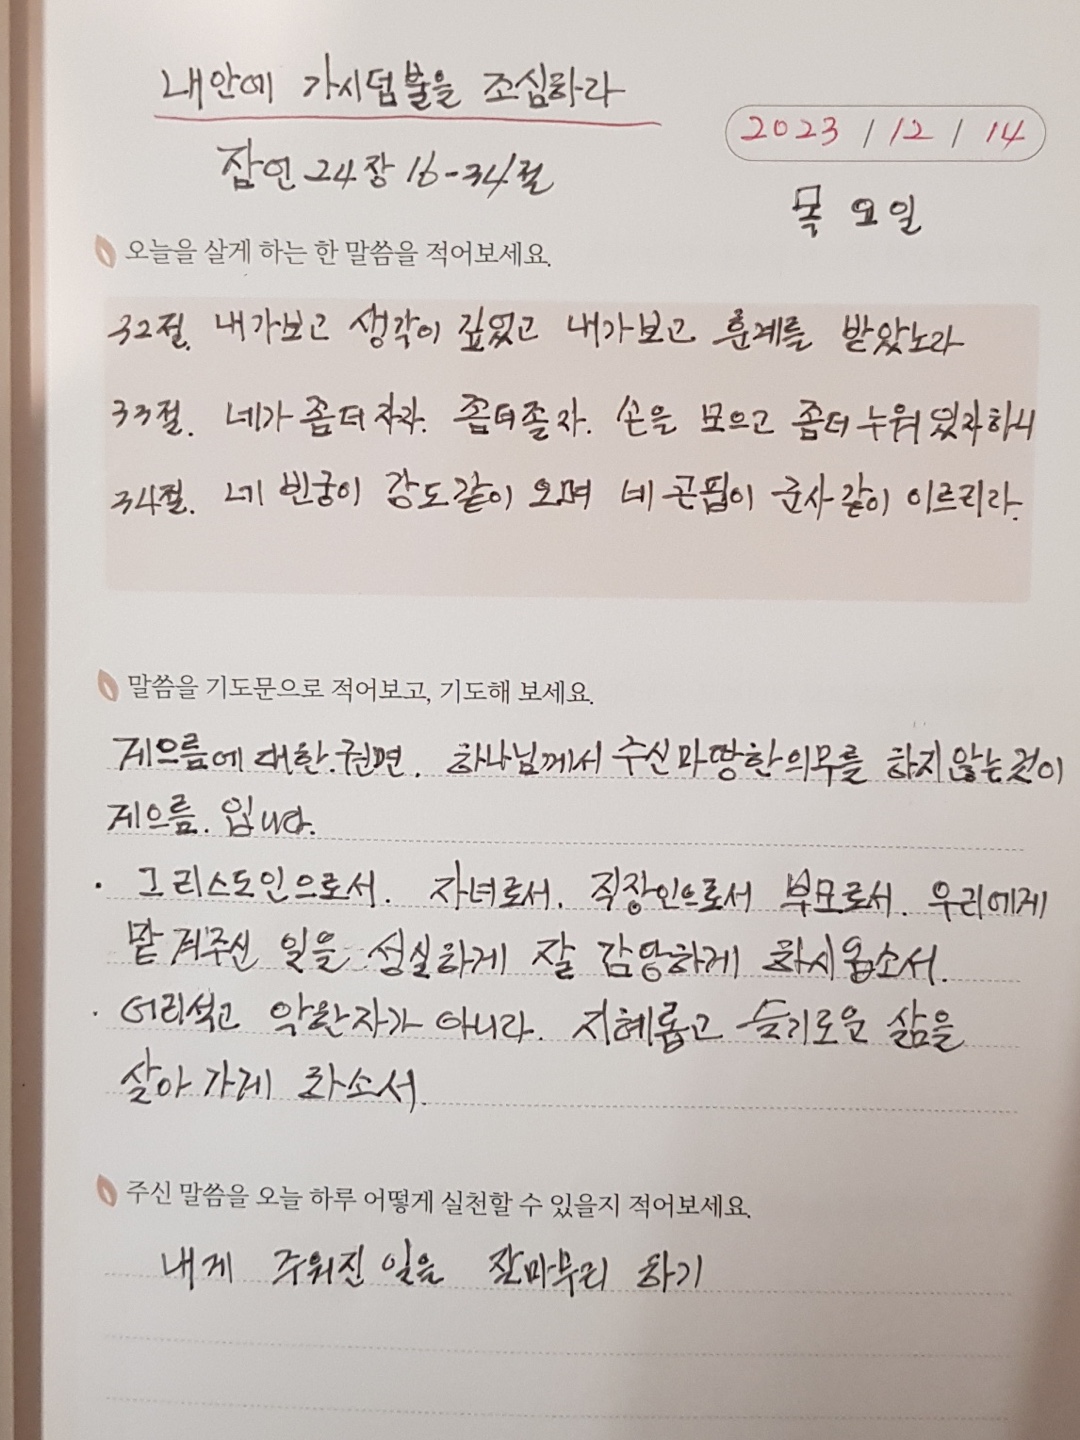 내안에 가시덤불을 조심하라
2023 / 12 / 14
잠언 24장 16-34절
목요일
오늘을 살게 하는 한 말씀을 적어보세요.
32절. 내가보고 생각이 깊었고 내가보고 훈계를 받았노라
33절. 네가 좀더자자. 좀더졸자. 손을 모으고 좀더 누워있자하니
34절. 네 빈궁이 강도같이 오며 네 곤핍이 군사같이 이르리라.
말씀을 기도문으로 적어보고, 기도해 보세요.
게으름에 대한.권면. 하나님께서 주신 마땅한의무를 하지않는것이
게으름. 입니다.
· 그리스도인으로서. 자녀로서. 직장인으로서 부모로서. 우리에게
맡겨주신 일을 성실하게 잘 감당하게 하시옵소서.
· 어리석고 악한자가 아니라. 지혜롭고 슬기로운 삶을
살아가게 하소서.
주신 말씀을 오늘 하루 어떻게 실천할 수 있을지 적어보세요.
내게 주워진 일을 잘마무리 하기